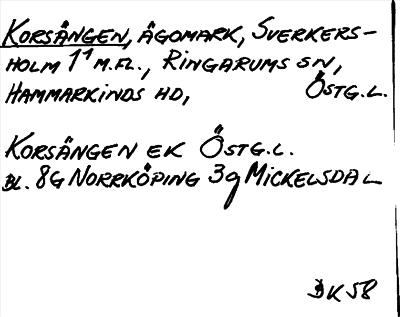 KORSÄNGEN, ÄGOMARK, SVERKERS-
HOLM 1¹ M.FL., RINGARUMS SN,
HAMMARKINDS HD, ÖSTG.L.
KORSÄNGEN EK ÖSTG.L.
BL. 8G NORRKÖPING 3g MICKELSDAL
BK 58